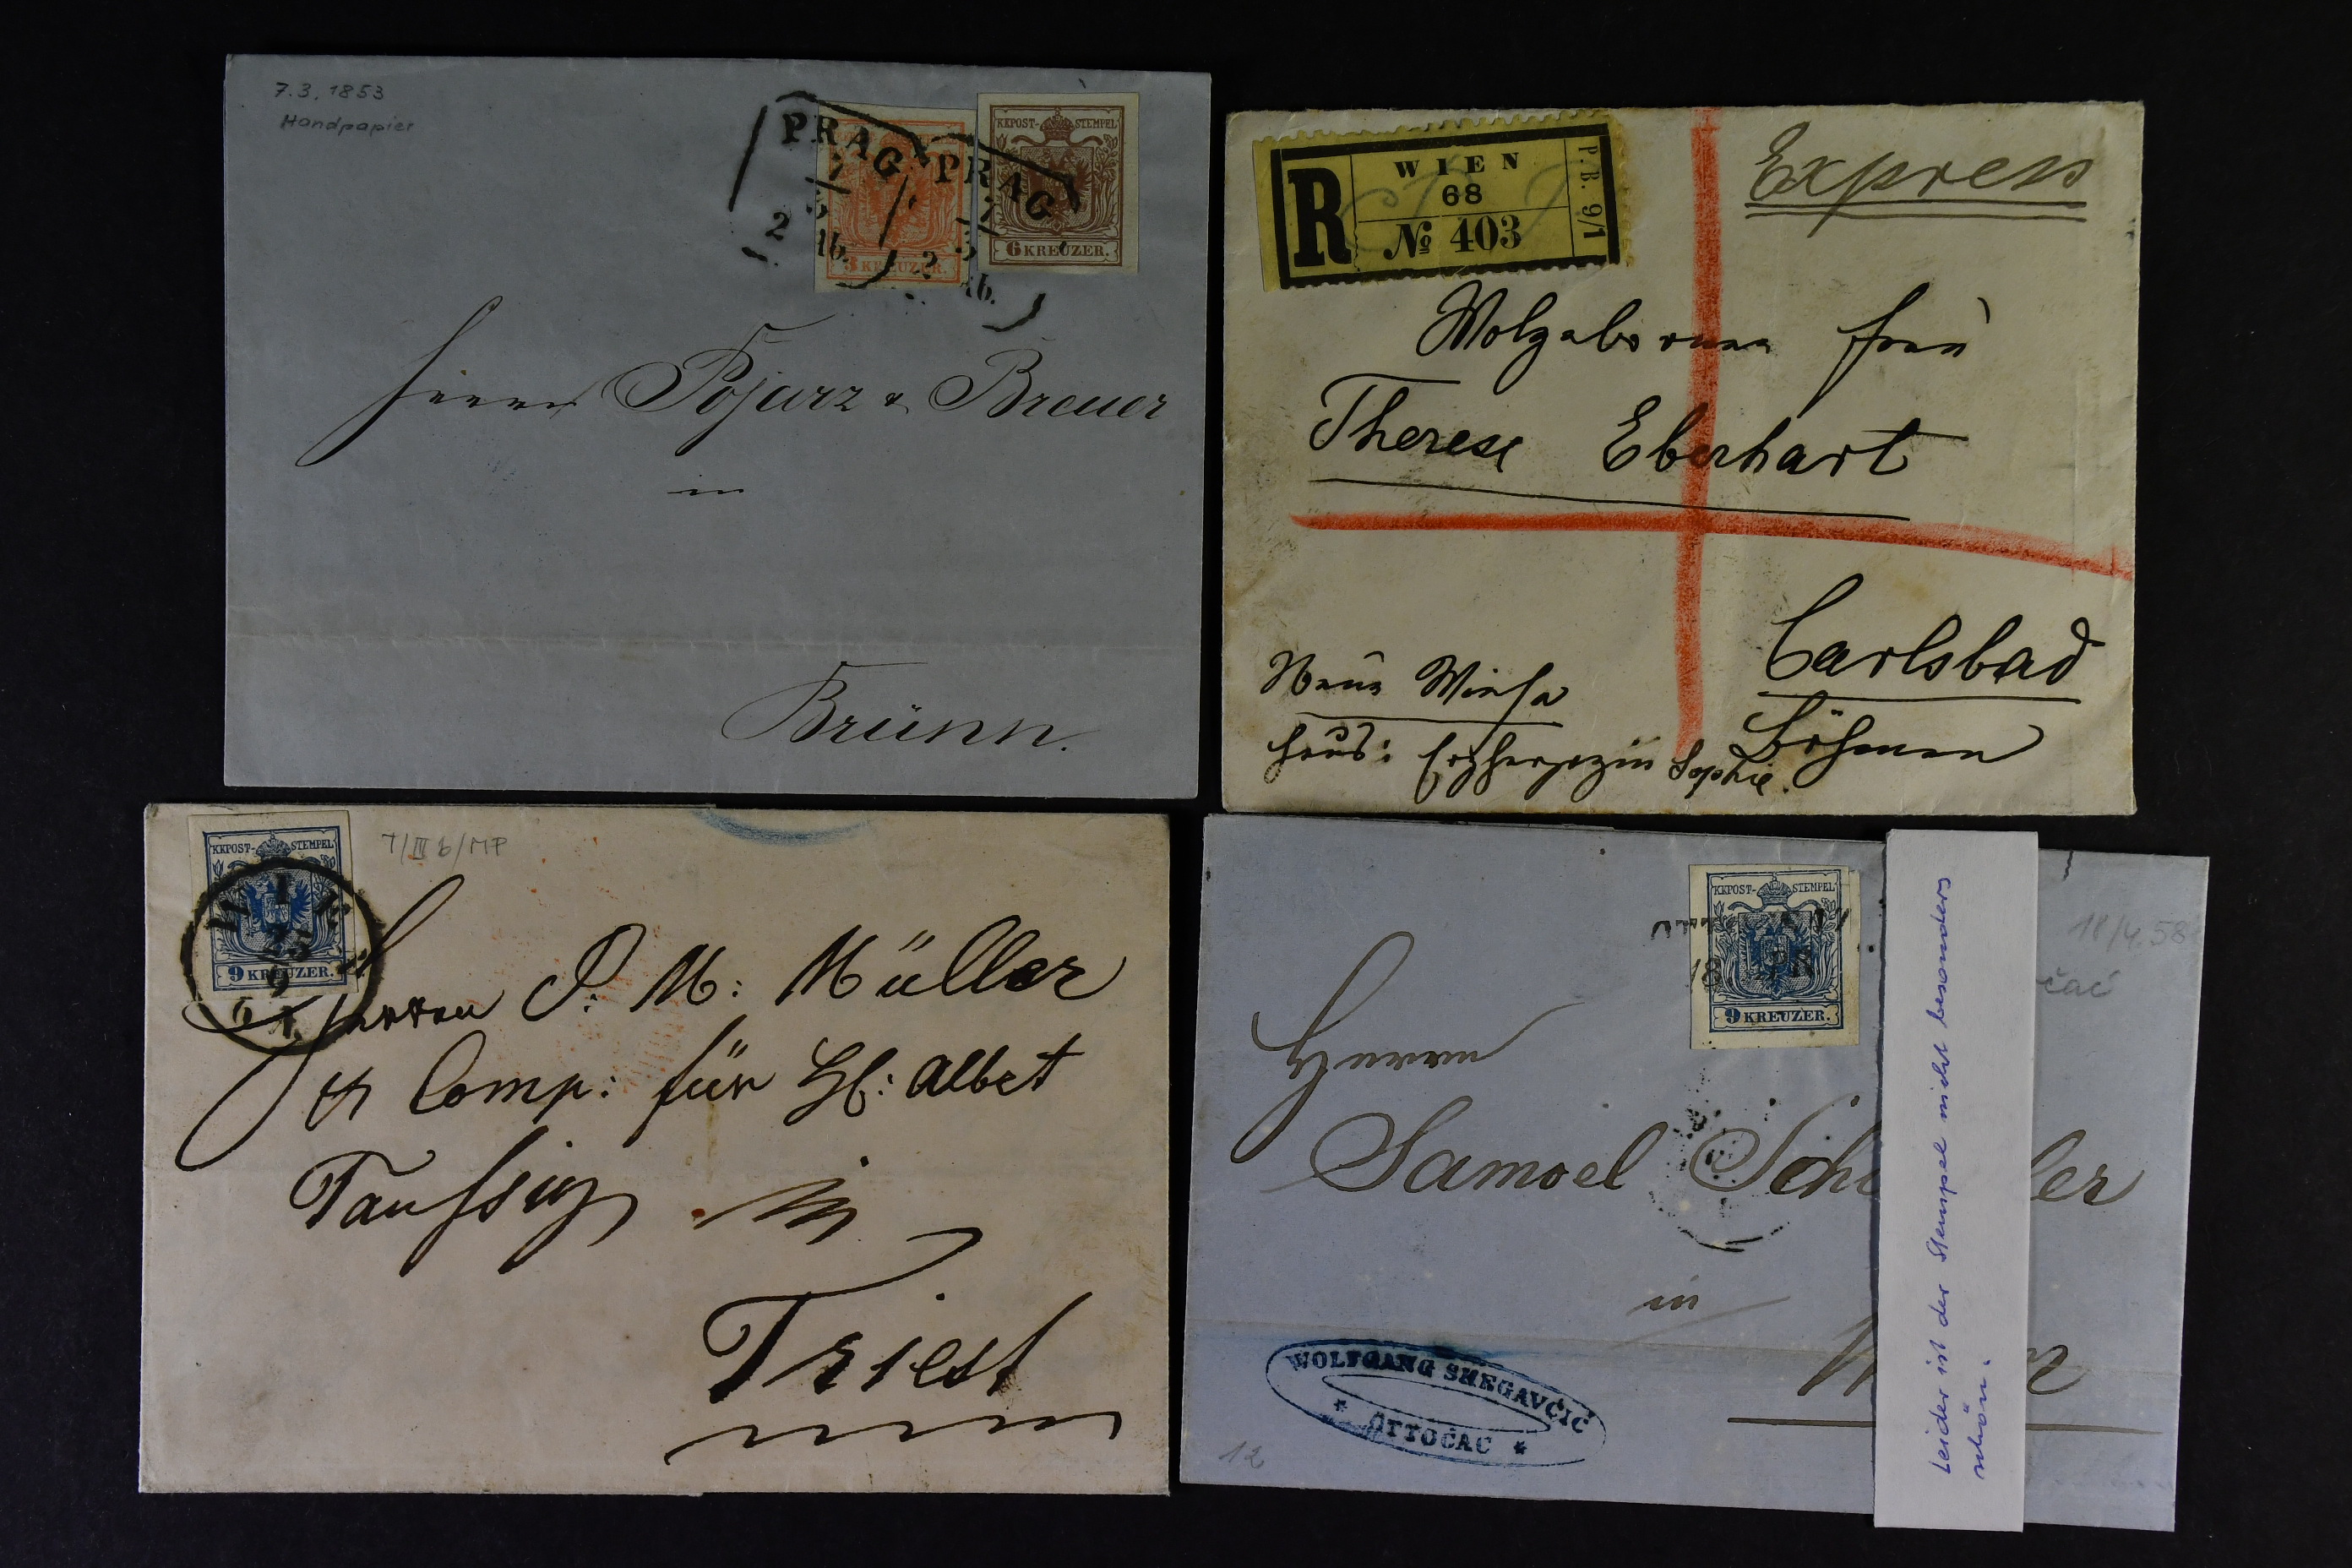 7.3.1853
Handpapier
PRAG
7
3
2 Ab.
PRAG
7
3
2 Ab.
3 KREUZER.
KKPOST-STEMPEL
6 KREUZER.
Herrn Pojurz & Breuer
in
Brünn.
R
WIEN
68
№ 403
P. B. 9/1
Express
Wolgeborene Frau
Therese Eberhart
Carlsbad
Böhmen
Neue Wiese
Haus: Erzherzogin Sophie.
KKPOST-STEMPEL
9 KREUZER.
WIEN
9
I/III b/MP
Herren P. M. Müller
& Comp: für H: Albet
Taussig in
Triest
KKPOST-STEMPEL
9 KREUZER.
18
18/4.58
čać
Herrn
Samoel Sch ler
in
W n
WOLFGANG SHEGAVČIĆ
* OTTOČAC *
12
Leider ist der Stempel nicht besonders
schön.